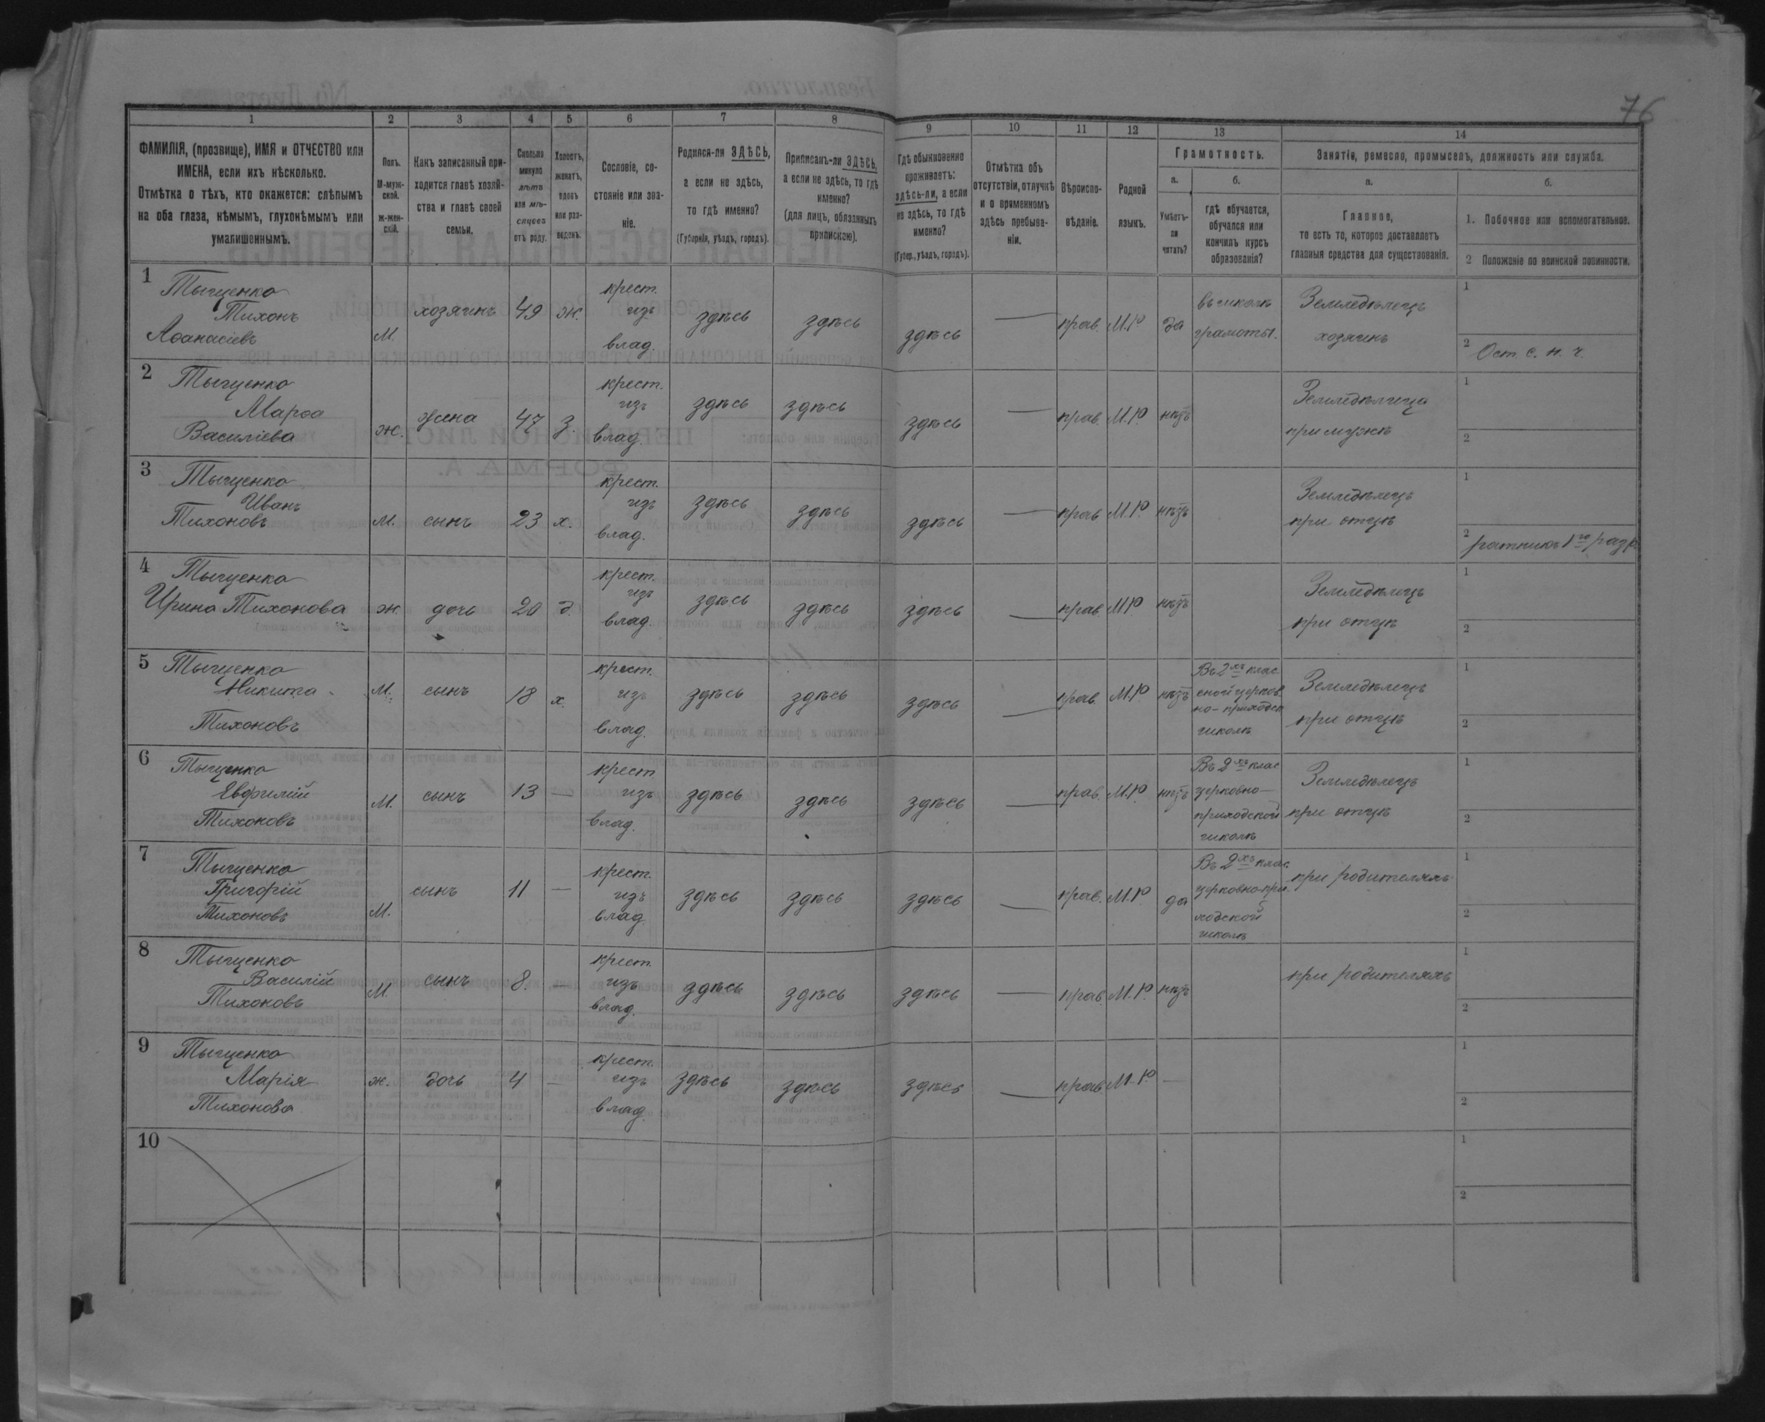 76
1 2 3 4 5 6 7 8 9 10 11 12 13 14
ФАМИЛІЯ, (прозвище), ИМЯ и ОТЧЕСТВО или
ИМЕНА, если ихъ нѣсколько.
Отмѣтка о тѣхъ, кто окажется: слѣпымъ
на оба глаза, нѣмымъ, глухонѣмымъ или
умалишеннымъ.
Полъ.
М-муж-
ской.
ж-жен-
скій.
Какъ записанный при-
ходится главѣ хозяй-
ства и главѣ своей
семьи.
Сколько
минуло
лѣтъ
или мѣ-
сяцевъ
отъ роду.
Холостъ,
женатъ,
вдовъ
или раз-
веденъ.
Сословіе, со-
стояніе или зва-
ніе.
Родился-ли ЗДѢСЬ,
а если не здѣсь,
то гдѣ именно?
(Губернія, уѣздъ, городъ).
Приписанъ-ли ЗДѢСЬ,
а если не здѣсь, то гдѣ
именно?
(для лицъ, обязанныхъ
припискою).
Гдѣ обыкновенно
проживаетъ:
здѣсь-ли, а если
не здѣсь, то гдѣ
именно?
(Губер., уѣздъ, городъ).
Отмѣтка объ
отсутствіи, отлучкѣ
и о временномъ
здѣсь пребыва-
ніи.
Вѣроиспо-
вѣданіе.
Родной
языкъ.
Грамотность.
а.
Умѣетъ-
ли
читать?
б.
гдѣ обучается,
обучался или
кончилъ курсъ
образованія?
Занятіе, ремесло, промыселъ, должность или служба.
а.
Главное,
то есть то, которое доставляетъ
главныя средства для существованія.
б.
1. Побочное или вспомогательное.
2 Положеніе по воинской повинности.
1 Тыщенко
Тихонъ
Аѳанасіевъ
М.
хозяинъ 49 ж.
крест.
изъ
влад.
здѣсь здѣсь здѣсь — прав. М.Р да
въ школѣ
грамотѣ.
Земледѣлецъ
хозяинъ
1
2 Ост с. н. ч.
2 Тыщенко
Марѳа
Василіева
ж. жена 47 з.
крест.
изъ
влад.
здѣсь здѣсь здѣсь — прав. М.Р. нѣтъ
Земледѣлица
при мужѣ
1
2
3 Тыщенко
Иванъ
Тихоновъ
М. сынъ 23 х.
крест.
изъ
влад.
здѣсь здѣсь здѣсь — прав М.Р нѣтъ
Земледѣлецъ
при отцѣ
1
2 ратникъ 1го разр.
4 Тыщенко
Ирина Тихонова
ж. дочь 20 д.
крест.
изъ
влад.
здѣсь здѣсь здѣсь — прав. М.Р нѣтъ
Земледѣлецъ
при отцѣ
1
2
5 Тыщенко
Никита
Тихоновъ
М. сынъ 18 х.
крест.
изъ
влад.
здѣсь здѣсь здѣсь — прав. М.Р. нѣтъ
Въ 2хъ клас
сной церков
но-приходск
школѣ
Земледѣлецъ
при отцѣ
1
2
6 Тыщенко
Евфимій
Тихоновъ
М. сынъ 13 —
крест
изъ
влад.
здѣсь здѣсь здѣсь — прав. М.Р. нѣтъ
Въ 2хъ клас
церковно-
приходской
школѣ
Земледѣлецъ
при отцѣ
1
2
7 Тыщенко
Григорій
Тихоновъ
М. сынъ 11 —
крест.
изъ
влад
здѣсь здѣсь здѣсь — прав. М.Р да
Въ 2хъ клас
церковно-при-
ходской
школѣ
при родителяхъ
1
2
8 Тыщенко
Василій
Тихоновъ
М. сынъ 8. —
крест.
изъ
влад.
здѣсь здѣсь здѣсь — прав М.Р. нѣтъ
при родителяхъ
1
2
9 Тыщенко
Марія
Тихонова
ж. дочь 4 —
крест.
изъ
влад.
здѣсь здѣсь здѣсь — прав М.Р —
1
2
10
1
2